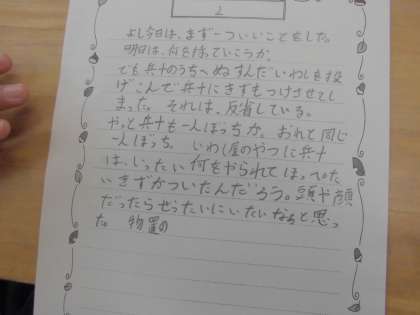 2
よし今日は、まず一ついいことをした。
明日は、何を持っていこうか。
でも兵十のうちへぬすんだいわしを投
げこんで兵十にきずをつけさせてし
まった。それは、反省している。
やっと兵十も一人ぼっちか。おれと同じ
一人ぼっち。いわし屋のやつに兵十
は、いったい何をやられてほっぺた
いきずかついたんだろう。頭や顔
だったらぜったいにいたいなあと思っ
た。物置の